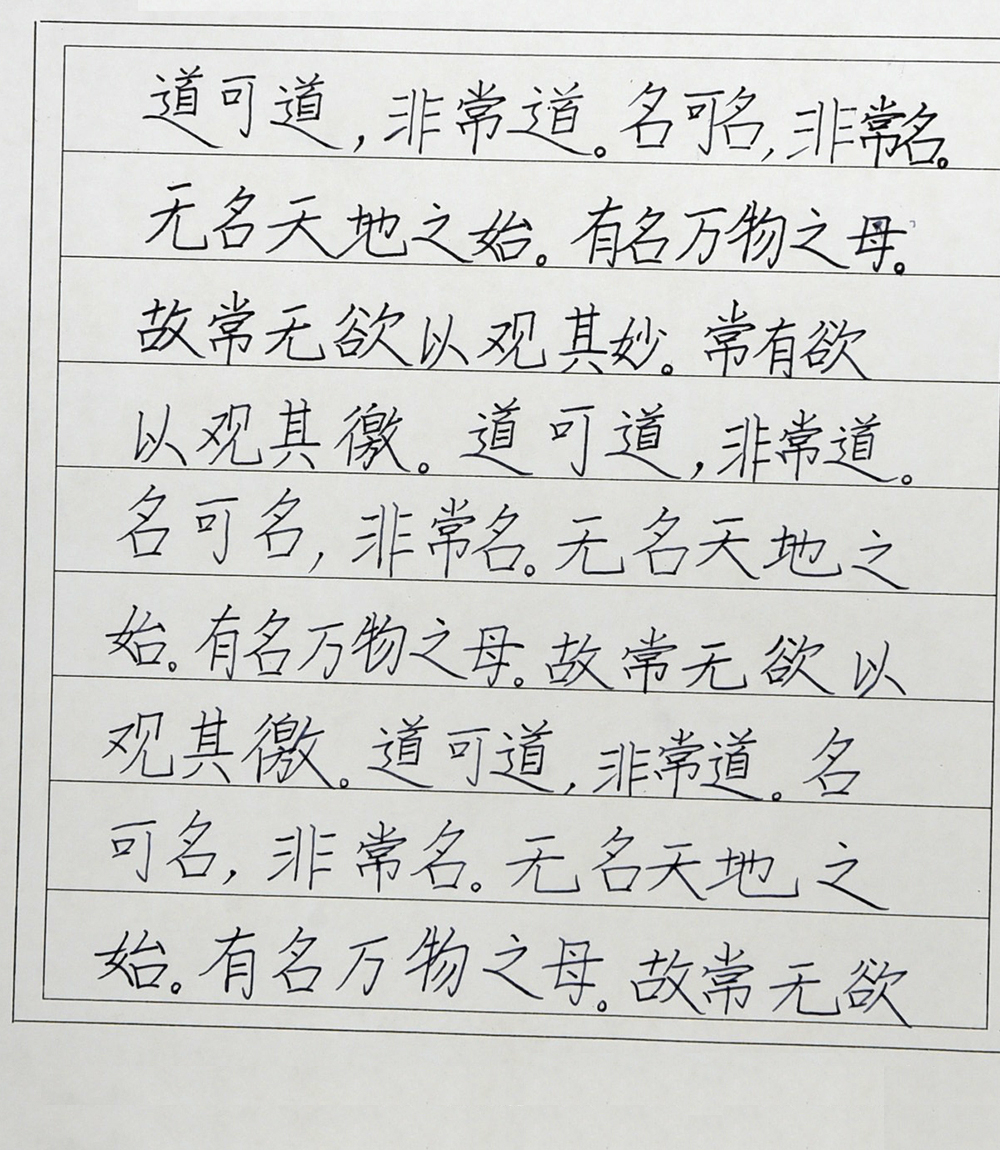 道可道，非常道。名可名，非常名。
无名天地之始。有名万物之母。
故常无欲以观其妙。常有欲
以观其徼。道可道，非常道。
名可名，非常名。无名天地之
始。有名万物之母。故常无欲以
观其徼。道可道，非常道。名
可名，非常名。无名天地之
始。有名万物之母。故常无欲